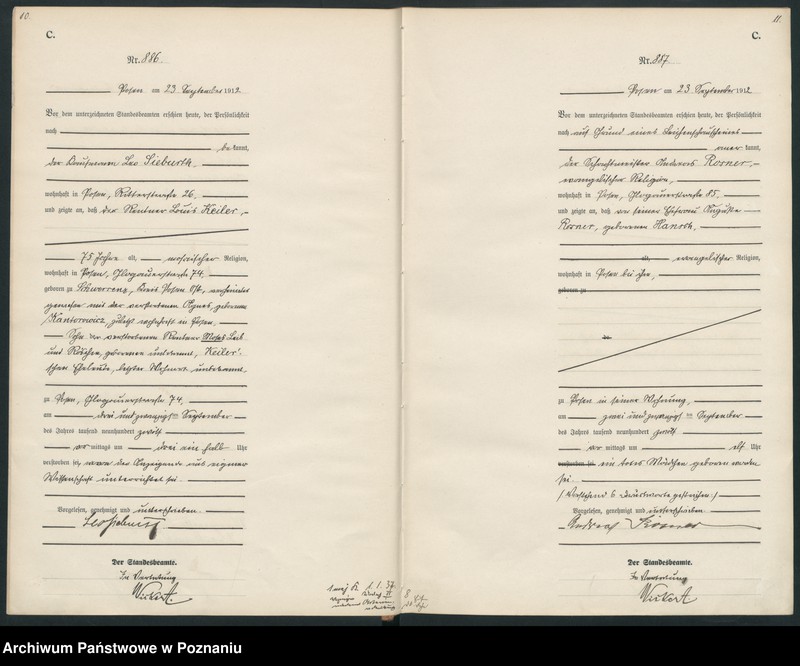 10.
C.
Nr. 886
Posen am 23 September 1912
Vor dem unterzeichneten Standesbeamten erschien heute, der Persönlichkeit
nach
be kannt,
der Kaufmann Leo Sieburth,
wohnhaft in Posen, Ritterstraße 26,
und zeigte an, daß der Rentner Louis Keiler,
75 Jahre alt, mosaischer Religion,
wohnhaft in Posen, Glogauerstraße 74,
geboren zu Schwersenz, Kreis Posen Ost, verheiratet
gewesen mit der verstorbenen Agnes, geborenen
Kantorowicz, zuletzt wohnhaft in Posen,
Sohn der verstorbenen Rentner Moses Leib
und Röschen, geborenen unbekannt, Keiler'-
schen Eheleute, letzter Wohnort unbekannt,
zu Posen, Glogauerstraße 74,
am drei und zwanzigsten September
des Jahres tausend neunhundert zwölf
vor mittags um drei ein halb Uhr
verstorben sei, wovon der Anzeigende aus eigener
Wissenschaft unterrichtet sei.
Vorgelesen, genehmigt und unterschrieben.
Leo Sieburth
Der Standesbeamte.
In Vertretung
11.
C.
Nr. 887
Posen am 23 September 1912
Vor dem unterzeichneten Standesbeamten erschien heute, der Persönlichkeit
nach auf Grund eines Leichenschauscheines
aner kannt,
der Schachtmeister Andreas Rosner,
evangelischer Religion,
wohnhaft in Posen, Glogauerstraße 85,
und zeigte an, daß von seiner Ehefrau Auguste
Rosner, geborenen Hanoth,
alt, evangelischer Religion,
wohnhaft in Posen bei ihm,
geboren zu
zu Posen in seiner Wohnung,
am zwei und zwanzigsten September
des Jahres tausend neunhundert zwölf
vor mittags um elf Uhr
verstorben sei ein totes Mädchen geboren worden
sei.
(Vorstehend 6 Druckworte gestrichen.)
Vorgelesen, genehmigt und unterschrieben.
Andreas Rosner
Der Standesbeamte.
In Vertretung
Archiwum Państwowe w Poznaniu